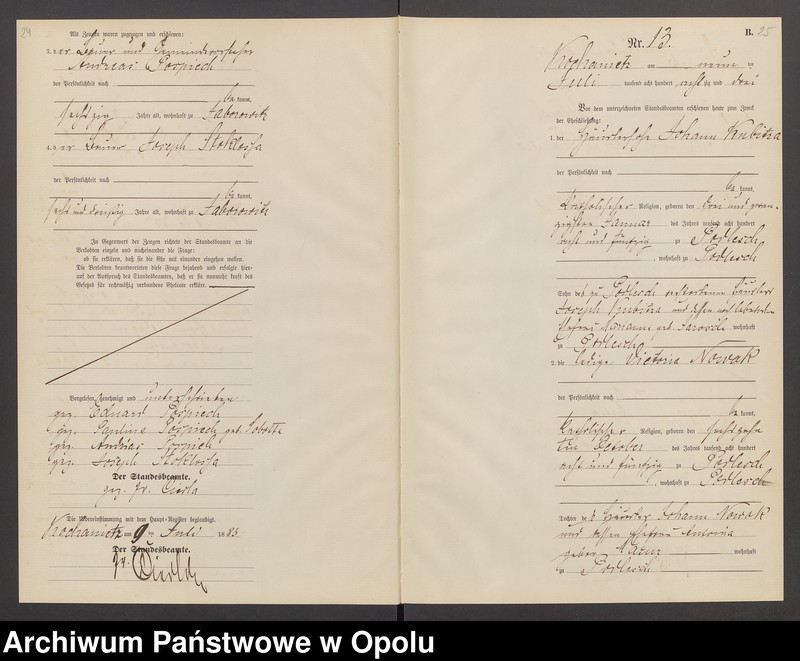 24
Als Zeugen waren zugezogen und erschienen:
3. der Bauer und Gemeindevorsteher
Andreas Pospiech
der Persönlichkeit nach
be kannt,
sechszig Jahre alt, wohnhaft zu Jaborowitz
4. der Bauer Joseph Stoklossa
der Persönlichkeit nach
be kannt,
sechs und dreißig Jahre alt, wohnhaft zu Jaborowitz
In Gegenwart der Zeugen richtete der Standesbeamte an die
Verlobten einzeln und nacheinander die Frage:
ob sie erklären, daß sie die Ehe mit einander eingehen wollen.
Die Verlobten beantworteten diese Frage bejahend und erfolgte hier-
auf der Ausspruch des Standesbeamten, daß er sie nunmehr kraft des
Gesetzes für rechtmäßig verbundene Eheleute erkläre.
Vorgelesen, genehmigt und unterschrieben
gez. Eduard Pospiech
gez. Pauline Pospiech geb. Sobotta
gez. Andreas Pospiech
gez. Joseph Stoklossa
Der Standesbeamte.
gez. Fr. Cierla
Die Uebereinstimmung mit dem Haupt-Register beglaubigt.
Kochanietz am 9 ten Juli 1883
Der Standesbeamte.
B. 25
Nr. 13.
Kochanietz am neun ten
Juli tausend acht hundert acht zig und drei
Vor dem unterzeichneten Standesbeamten erschienen heute zum Zweck
der Eheschließung:
1. der Häuslersohn Johann Kubitza
der Persönlichkeit nach
be kannt,
katholischer Religion, geboren den drei und zwan-
zigsten Januar des Jahres tausend acht hundert
acht und fünfzig zu Podlesch
, wohnhaft zu Podlesch
Sohn des zu Podlesch verstorbenen Häuslers
Joseph Kubitza und dessen noch lebenden
Ehefrau Marianna geb. Jarosch wohnhaft
zu Podlesch
2. die ledige Victoria Nowak
der Persönlichkeit nach
be kannt,
katholischer Religion, geboren den sechszehn
ten October des Jahres tausend acht hundert
acht und fünfzig zu Podlesch
, wohnhaft zu Podlesch
Tochter des Häusler Johann Nowak
und dessen Ehefrau Antonia
geboren wohnhaft
zu Podlesch
Archiwum Państwowe w Opolu